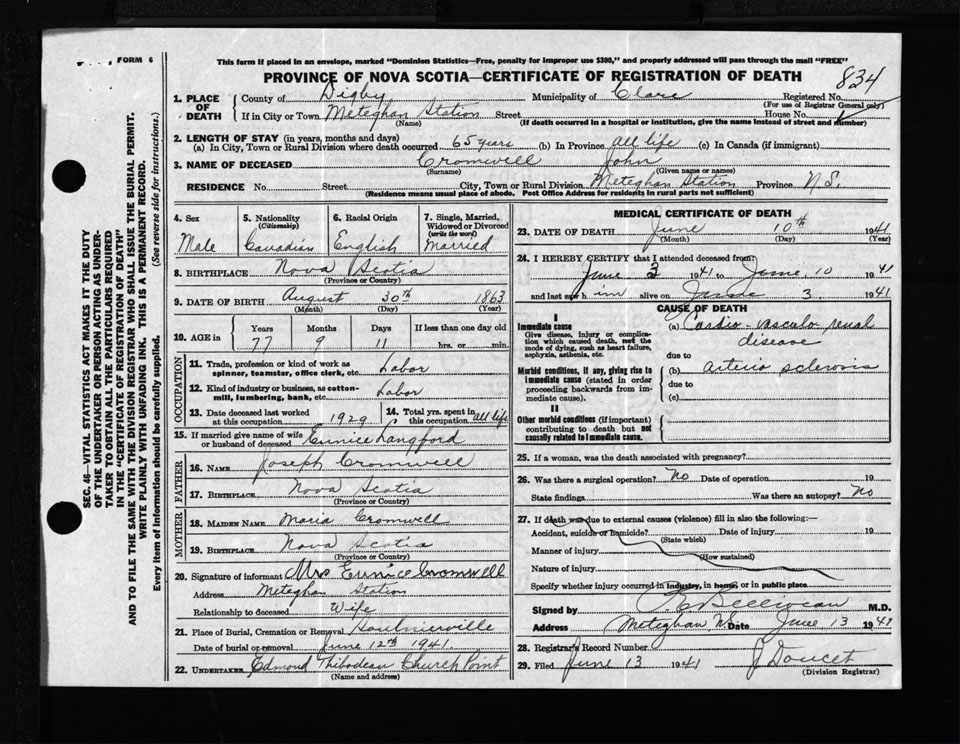 FORM 6
This form if placed in an envelope, marked "Dominion Statistics—Free, penalty for improper use $300," and properly addressed will pass through the mail "FREE"
PROVINCE OF NOVA SCOTIA—CERTIFICATE OF REGISTRATION OF DEATH
834
1. PLACE OF DEATH
County of Digby Municipality of Clare Registered No.
(For use of Registrar General only)
If in City or Town Meteghan Station Street House No.
(Name) (If death occurred in a hospital or institution, give the name instead of street and number)
2. LENGTH OF STAY (in years, months and days)
(a) In City, Town or Rural Division where death occurred 65 years (b) In Province All life (c) In Canada (if immigrant)
3. NAME OF DECEASED Cromwell John
(Surname) (Given name or names)
RESIDENCE No. Street City, Town or Rural Division Meteghan Station Province N.S.
(Residence means usual place of abode. Post Office Address for residents in rural parts not sufficient)
4. Sex Male
5. Nationality (Citizenship) Canadian
6. Racial Origin English
7. Single, Married, Widowed or Divorced (write the word) Married
8. BIRTHPLACE Nova Scotia
(Province or Country)
9. DATE OF BIRTH August 30th 1863
(Month) (Day) (Year)
10. AGE in
Years Months Days If less than one day old
77 9 11 hrs. or min.
OCCUPATION
11. Trade, profession or kind of work as
spinner, teamster, office clerk, etc. Labor
12. Kind of industry or business, as cotton-
mill, lumbering, bank, etc. Labor
13. Date deceased last worked at this occupation 1929
14. Total yrs. spent in this occupation all life
15. If married give name of wife or husband of deceased Eunice Langford
FATHER
16. NAME Joseph Cromwell
17. BIRTHPLACE Nova Scotia
(Province or Country)
MOTHER
18. MAIDEN NAME Maria Cromwell
19. BIRTHPLACE Nova Scotia
(Province or Country)
20. Signature of informant Mrs Eunice Cromwell
Address Meteghan Station
Relationship to deceased Wife
21. Place of Burial, Cremation or Removal Saulnierville
Date of burial or removal June 12th 1941.
22. UNDERTAKER Edmond Thibodeau Church Point
(Name and address)
MEDICAL CERTIFICATE OF DEATH
23. DATE OF DEATH June 10th 1941
(Month) (Day) (Year)
24. I HEREBY CERTIFY that I attended deceased from:
June 3 1941 to June 10 1941
and last saw him alive on June 3. 1941
CAUSE OF DEATH
I
Immediate cause
Give disease, injury or complication which caused death, not the mode of dying, such as heart failure, asphyxia, asthenia, etc.
(a) Cardio-vasculo renal
disease
due to
Morbid conditions, if any, giving rise to immediate cause (stated in order proceeding backwards from immediate cause).
(b) arterio sclerosis
due to
(c)
II
Other morbid conditions (if important) contributing to death but not causally related to immediate cause.
25. If a woman, was the death associated with pregnancy?
26. Was there a surgical operation? No Date of operation 19
State findings Was there an autopsy? No
27. If death was due to external causes (violence) fill in also the following:—
Accident, suicide or homicide? Date of injury 19
(State which)
Manner of injury
(How sustained)
Nature of injury
Specify whether injury occurred in industry, in home, or in public place
Signed by Belliveau M.D.
Address Meteghan N.S. Date June 13 1941
28. Registrar's Record Number
29. Filed June 13 1941 J Doucet
(Division Registrar)
SEC. 46—VITAL STATISTICS ACT MAKES IT THE DUTY
OF THE UNDERTAKER OR PERSON ACTING AS UNDER-
TAKER TO OBTAIN ALL THE PARTICULARS REQUIRED
IN THE "CERTIFICATE OF REGISTRATION OF DEATH"
AND TO FILE THE SAME WITH THE DIVISION REGISTRAR WHO SHALL ISSUE THE BURIAL PERMIT.
WRITE PLAINLY WITH UNFADING INK. THIS IS A PERMANENT RECORD.
Every item of information should be carefully supplied. (See reverse side for instructions.)